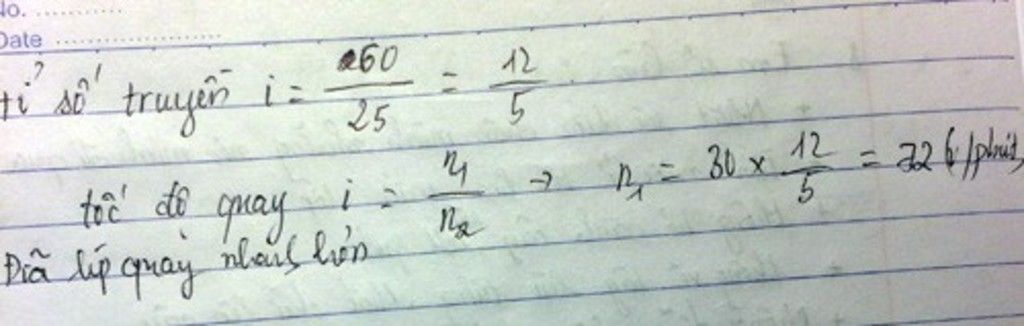 No. ............
Date ........................
tỉ số truyền i = 60/25 = 12/5
tốc độ quay i = n₁/n₂ → n₁ = 30 × 12/5 = 72 (/phút)
Đĩa líp quay nhanh hơn